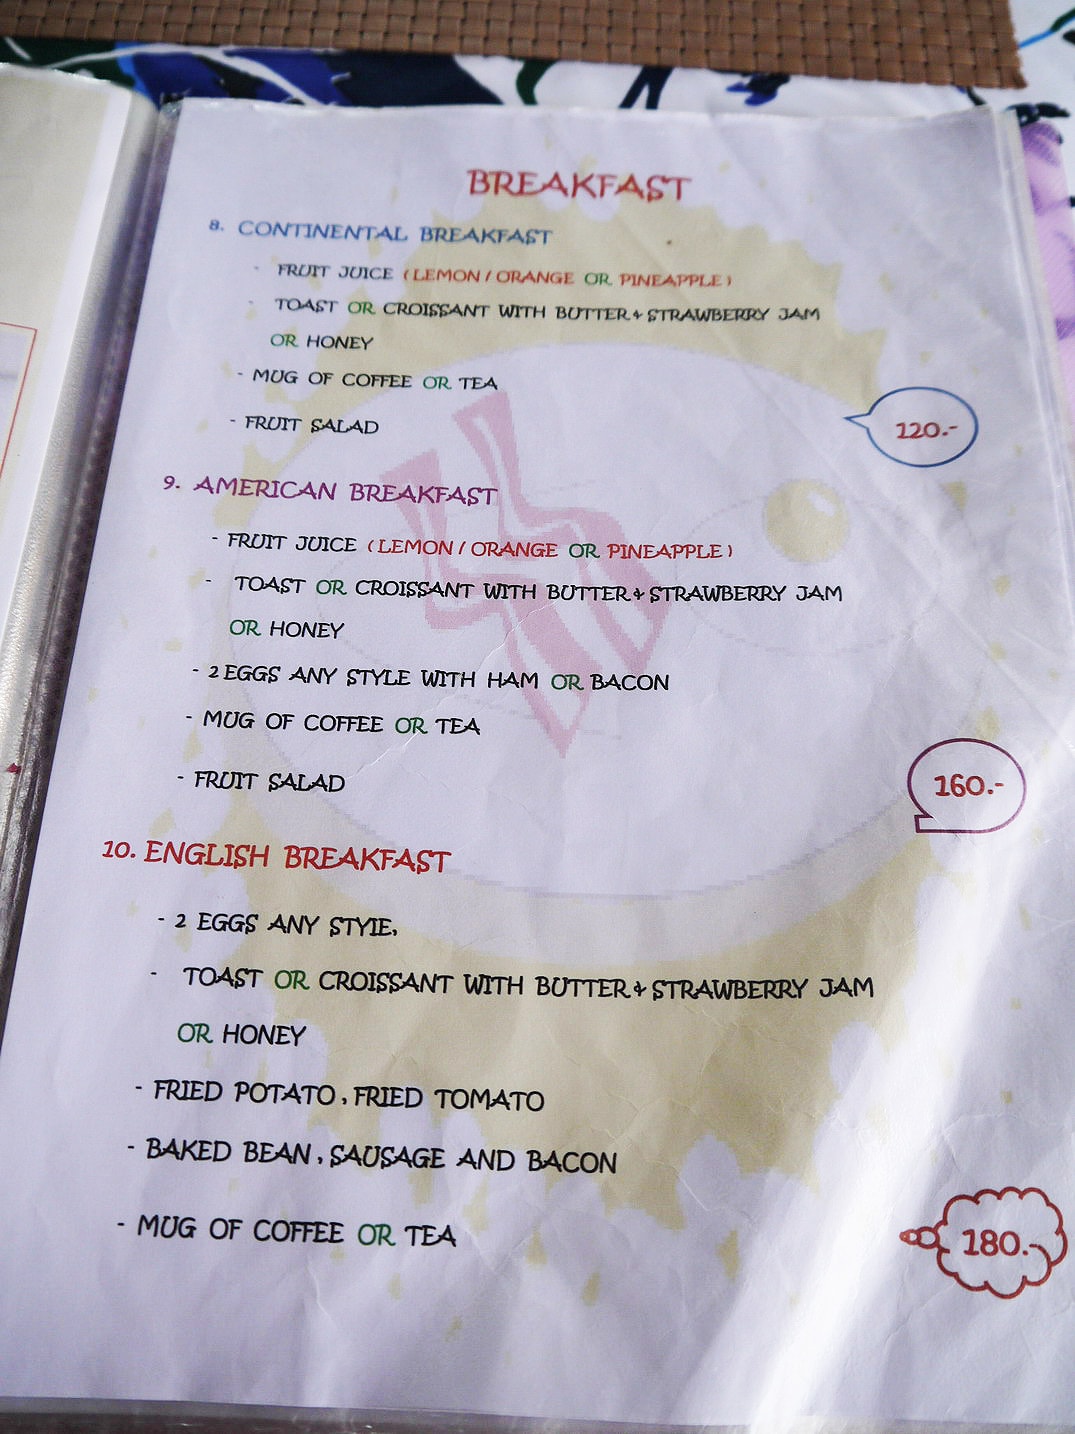 BREAKFAST
8. CONTINENTAL BREAKFAST
- FRUIT JUICE (LEMON / ORANGE OR PINEAPPLE)
- TOAST OR CROISSANT WITH BUTTER & STRAWBERRY JAM
OR HONEY
- MUG OF COFFEE OR TEA
- FRUIT SALAD
120.-
9. AMERICAN BREAKFAST
- FRUIT JUICE (LEMON / ORANGE OR PINEAPPLE)
- TOAST OR CROISSANT WITH BUTTER & STRAWBERRY JAM
OR HONEY
- 2 EGGS ANY STYLE WITH HAM OR BACON
- MUG OF COFFEE OR TEA
- FRUIT SALAD
160.-
10. ENGLISH BREAKFAST
- 2 EGGS ANY STYIE,
- TOAST OR CROISSANT WITH BUTTER & STRAWBERRY JAM
OR HONEY
- FRIED POTATO, FRIED TOMATO
- BAKED BEAN, SAUSAGE AND BACON
- MUG OF COFFEE OR TEA
180.-